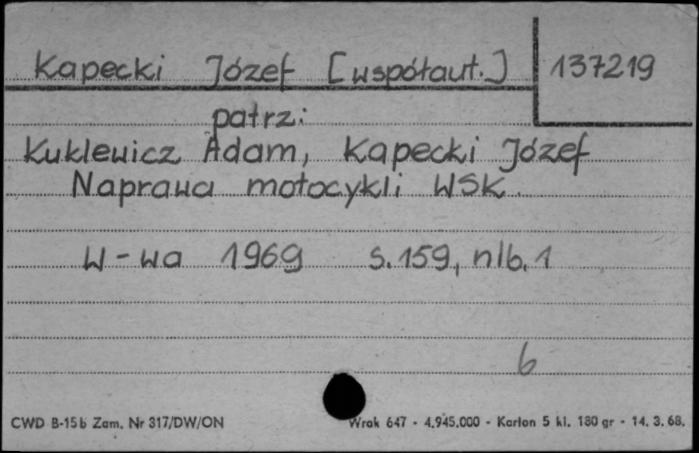 Kapecki Józef [współaut.] 137219
patrz:
Kuklewicz Adam, Kapecki Józef
Naprawa motocykli WSK.
W-wa 1969 s. 159, nlb. 1
6
CWD B-15b Zam. Nr 317/DW/ON Wrak 647 - 4.945.000 - Karton 5 kl. 180 gr - 14. 3. 68.